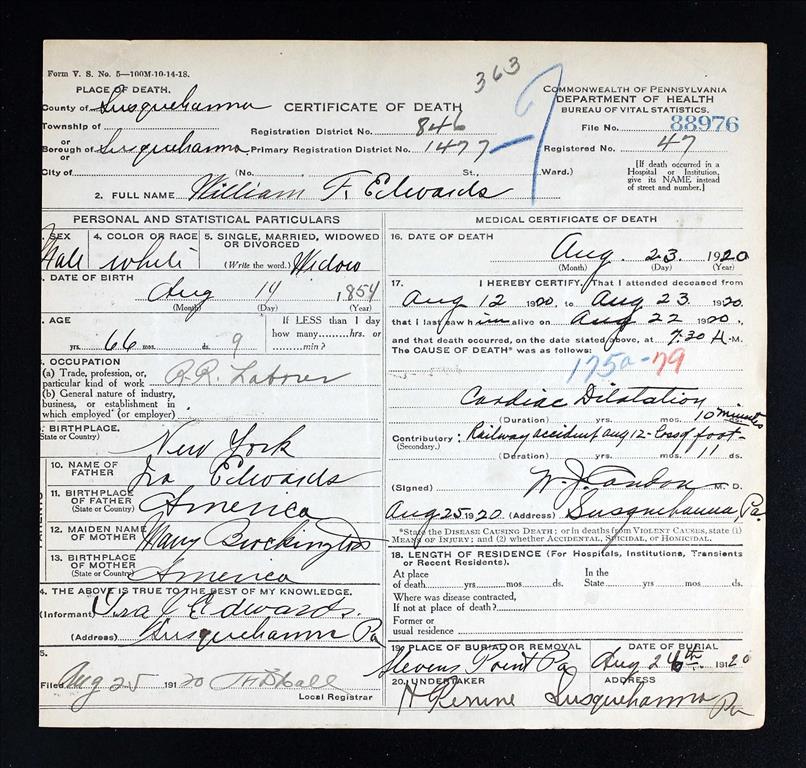 363
Form V. S. No. 5—100M-10-14-18.
PLACE OF DEATH.
County of Susquehanna
Township of
or
Borough of Susquehanna
or
City of
CERTIFICATE OF DEATH
Registration District No. 846
Primary Registration District No. 1477
(No. St., Ward.)
COMMONWEALTH OF PENNSYLVANIA
DEPARTMENT OF HEALTH
BUREAU OF VITAL STATISTICS.
File No. 88976
Registered No. 47
[If death occurred in a
Hospital or Institution,
give its NAME instead
of street and number.]
2. FULL NAME William F. Edwards
PERSONAL AND STATISTICAL PARTICULARS
SEX
Male
4. COLOR OR RACE
white
5. SINGLE, MARRIED, WIDOWED
OR DIVORCED
(Write the word.) Widow
DATE OF BIRTH
Aug 14 1854
(Month) (Day) (Year)
AGE
66 yrs. mos. 9 ds.
If LESS than 1 day
how many hrs. or
min?
OCCUPATION
(a) Trade, profession, or,
particular kind of work R.R. Laborer
(b) General nature of industry,
business, or establishment in
which employed (or employer)
BIRTHPLACE.
State or Country)
New York
10. NAME OF
FATHER
Ira Edwards
11. BIRTHPLACE
OF FATHER
(State or Country)
America
12. MAIDEN NAME
OF MOTHER
Mary
13. BIRTHPLACE
OF MOTHER
(State or Country)
America
4. THE ABOVE IS TRUE TO THE BEST OF MY KNOWLEDGE.
(Informant) Ira J Edwards.
(Address) Susquehanna Pa
5.
Filed Aug 25 1920
Local Registrar
MEDICAL CERTIFICATE OF DEATH
16. DATE OF DEATH
Aug. 23 1920
(Month) (Day) (Year)
17. I HEREBY CERTIFY, That I attended deceased from
Aug 12 1920, to Aug 23 1920.
that I last saw him alive on Aug 22 1920,
and that death occurred, on the date stated above, at 7.30 A.M.
The CAUSE OF DEATH* was as follows:
175a-79
Cardiac Dilatation
(Duration) yrs. mos. 10 minutes
Contributory: Railway accident aug 12 - loss of foot -
(Secondary.)
(Duration) yrs. mos. 11 ds.
(Signed) W. J. Condon M. D.
Aug 25 1920 (Address) Susquehanna, Pa.
*State the DISEASE CAUSING DEATH; or in deaths from VIOLENT CAUSES, state (1)
MEANS OF INJURY; and (2) whether ACCIDENTAL, SUICIDAL, OR HOMICIDAL.
18. LENGTH OF RESIDENCE (For Hospitals, Institutions, Transients
or Recent Residents).
At place In the
of death yrs mos ds. State yrs mos ds.
Where was disease contracted,
If not at place of death?
Former or
usual residence
19. PLACE OF BURIAL OR REMOVAL
Stevens Point Pa
DATE OF BURIAL
Aug 26th 1920
20. UNDERTAKER
ADDRESS
Susquehanna
Pa